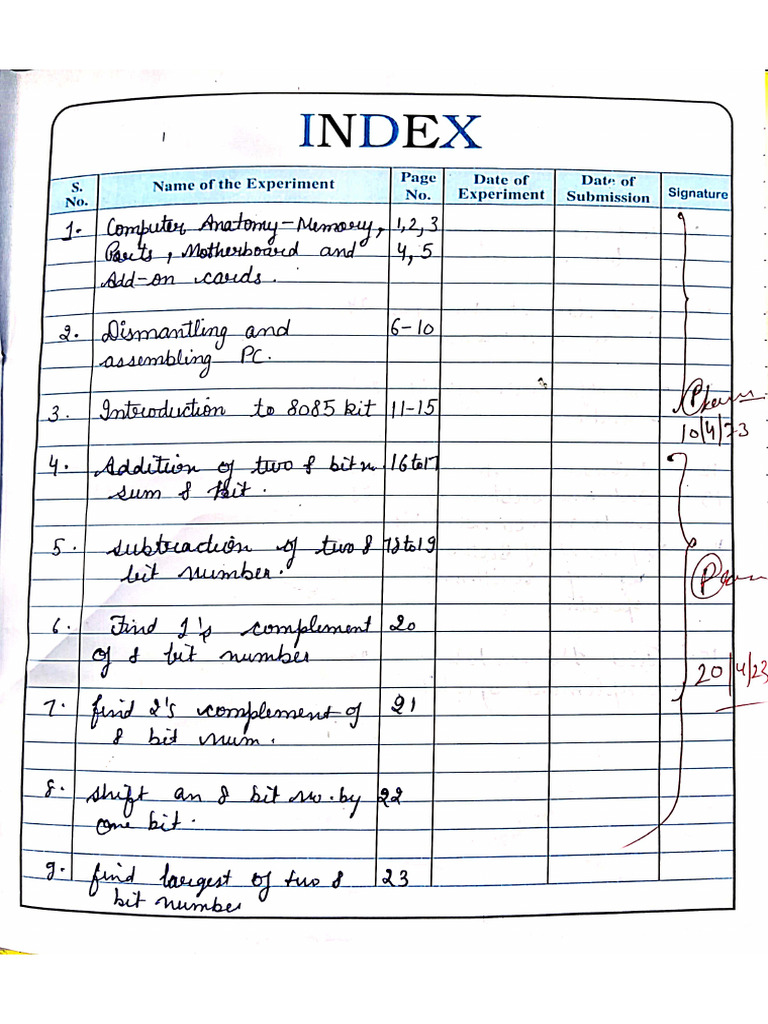 INDEX
S. No. Name of the Experiment Page No. Date of Experiment Date of Submission Signature
1. Computer Anatomy-Memory, 1,2,3
Parts, Motherboard and 4,5
Add-on cards.
2. Dismantling and 6-10
assembling PC.
3. Introduction to 8085 kit 11-15
10/4/23
4. Addition of two 8 bit n. 16to17
sum 8 bit.
5. subtraction of two 8 18to19
bit number.
6. Find 1's complement 20
of 8 bit number
20/4/23
7. find 2's complement of 21
8 bit num.
8. shift an 8 bit no. by 22
one bit.
9. find largest of two 8 23
bit number